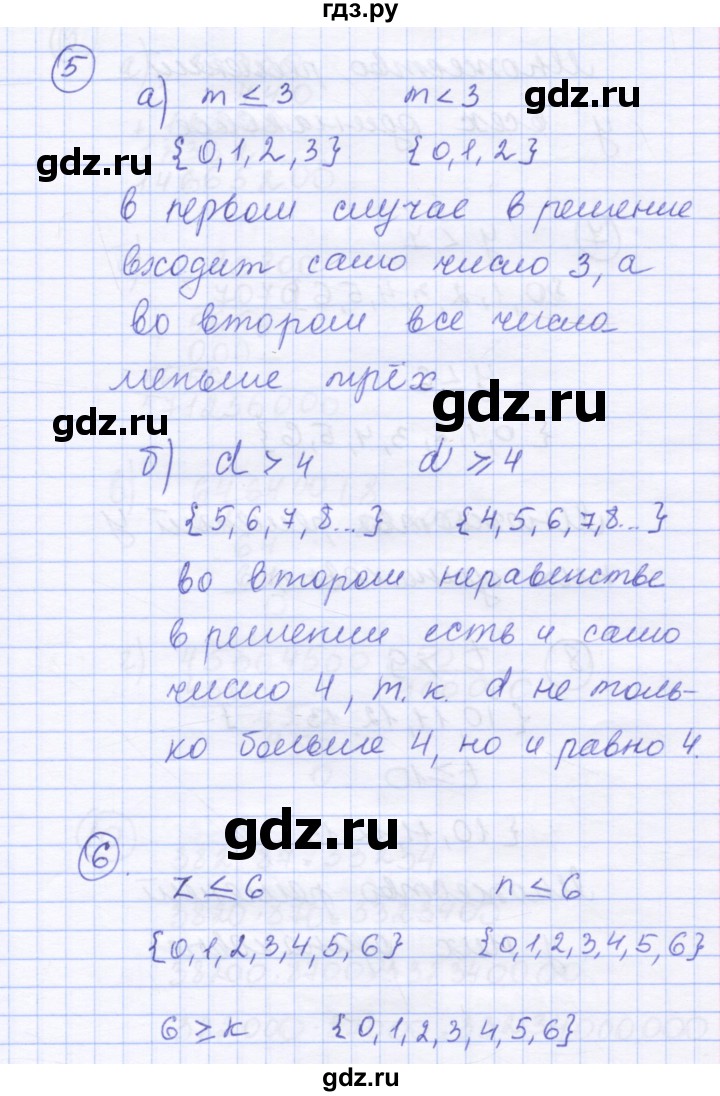 гдз.ру
5
а) m ≤ 3 m < 3
gdz.ru
{0,1,2,3} {0,1,2}
gdz.ru
в первом случае в решение
входит само число 3, а
во втором все числа
меньше трёх.
gdz.ru
gdz.ru
б) d > 4 d ⩾ 4
{5,6,7,8...} {4,5,6,7,8...}
во втором неравенстве
в решении есть и само
число 4, т.к. d не толь-
ко больше 4, но и равно 4.
gdz.ru
6.
z ≤ 6 n ≤ 6
{0,1,2,3,4,5,6} {0,1,2,3,4,5,6}
6 ≥ k {0,1,2,3,4,5,6}
gdz.ru